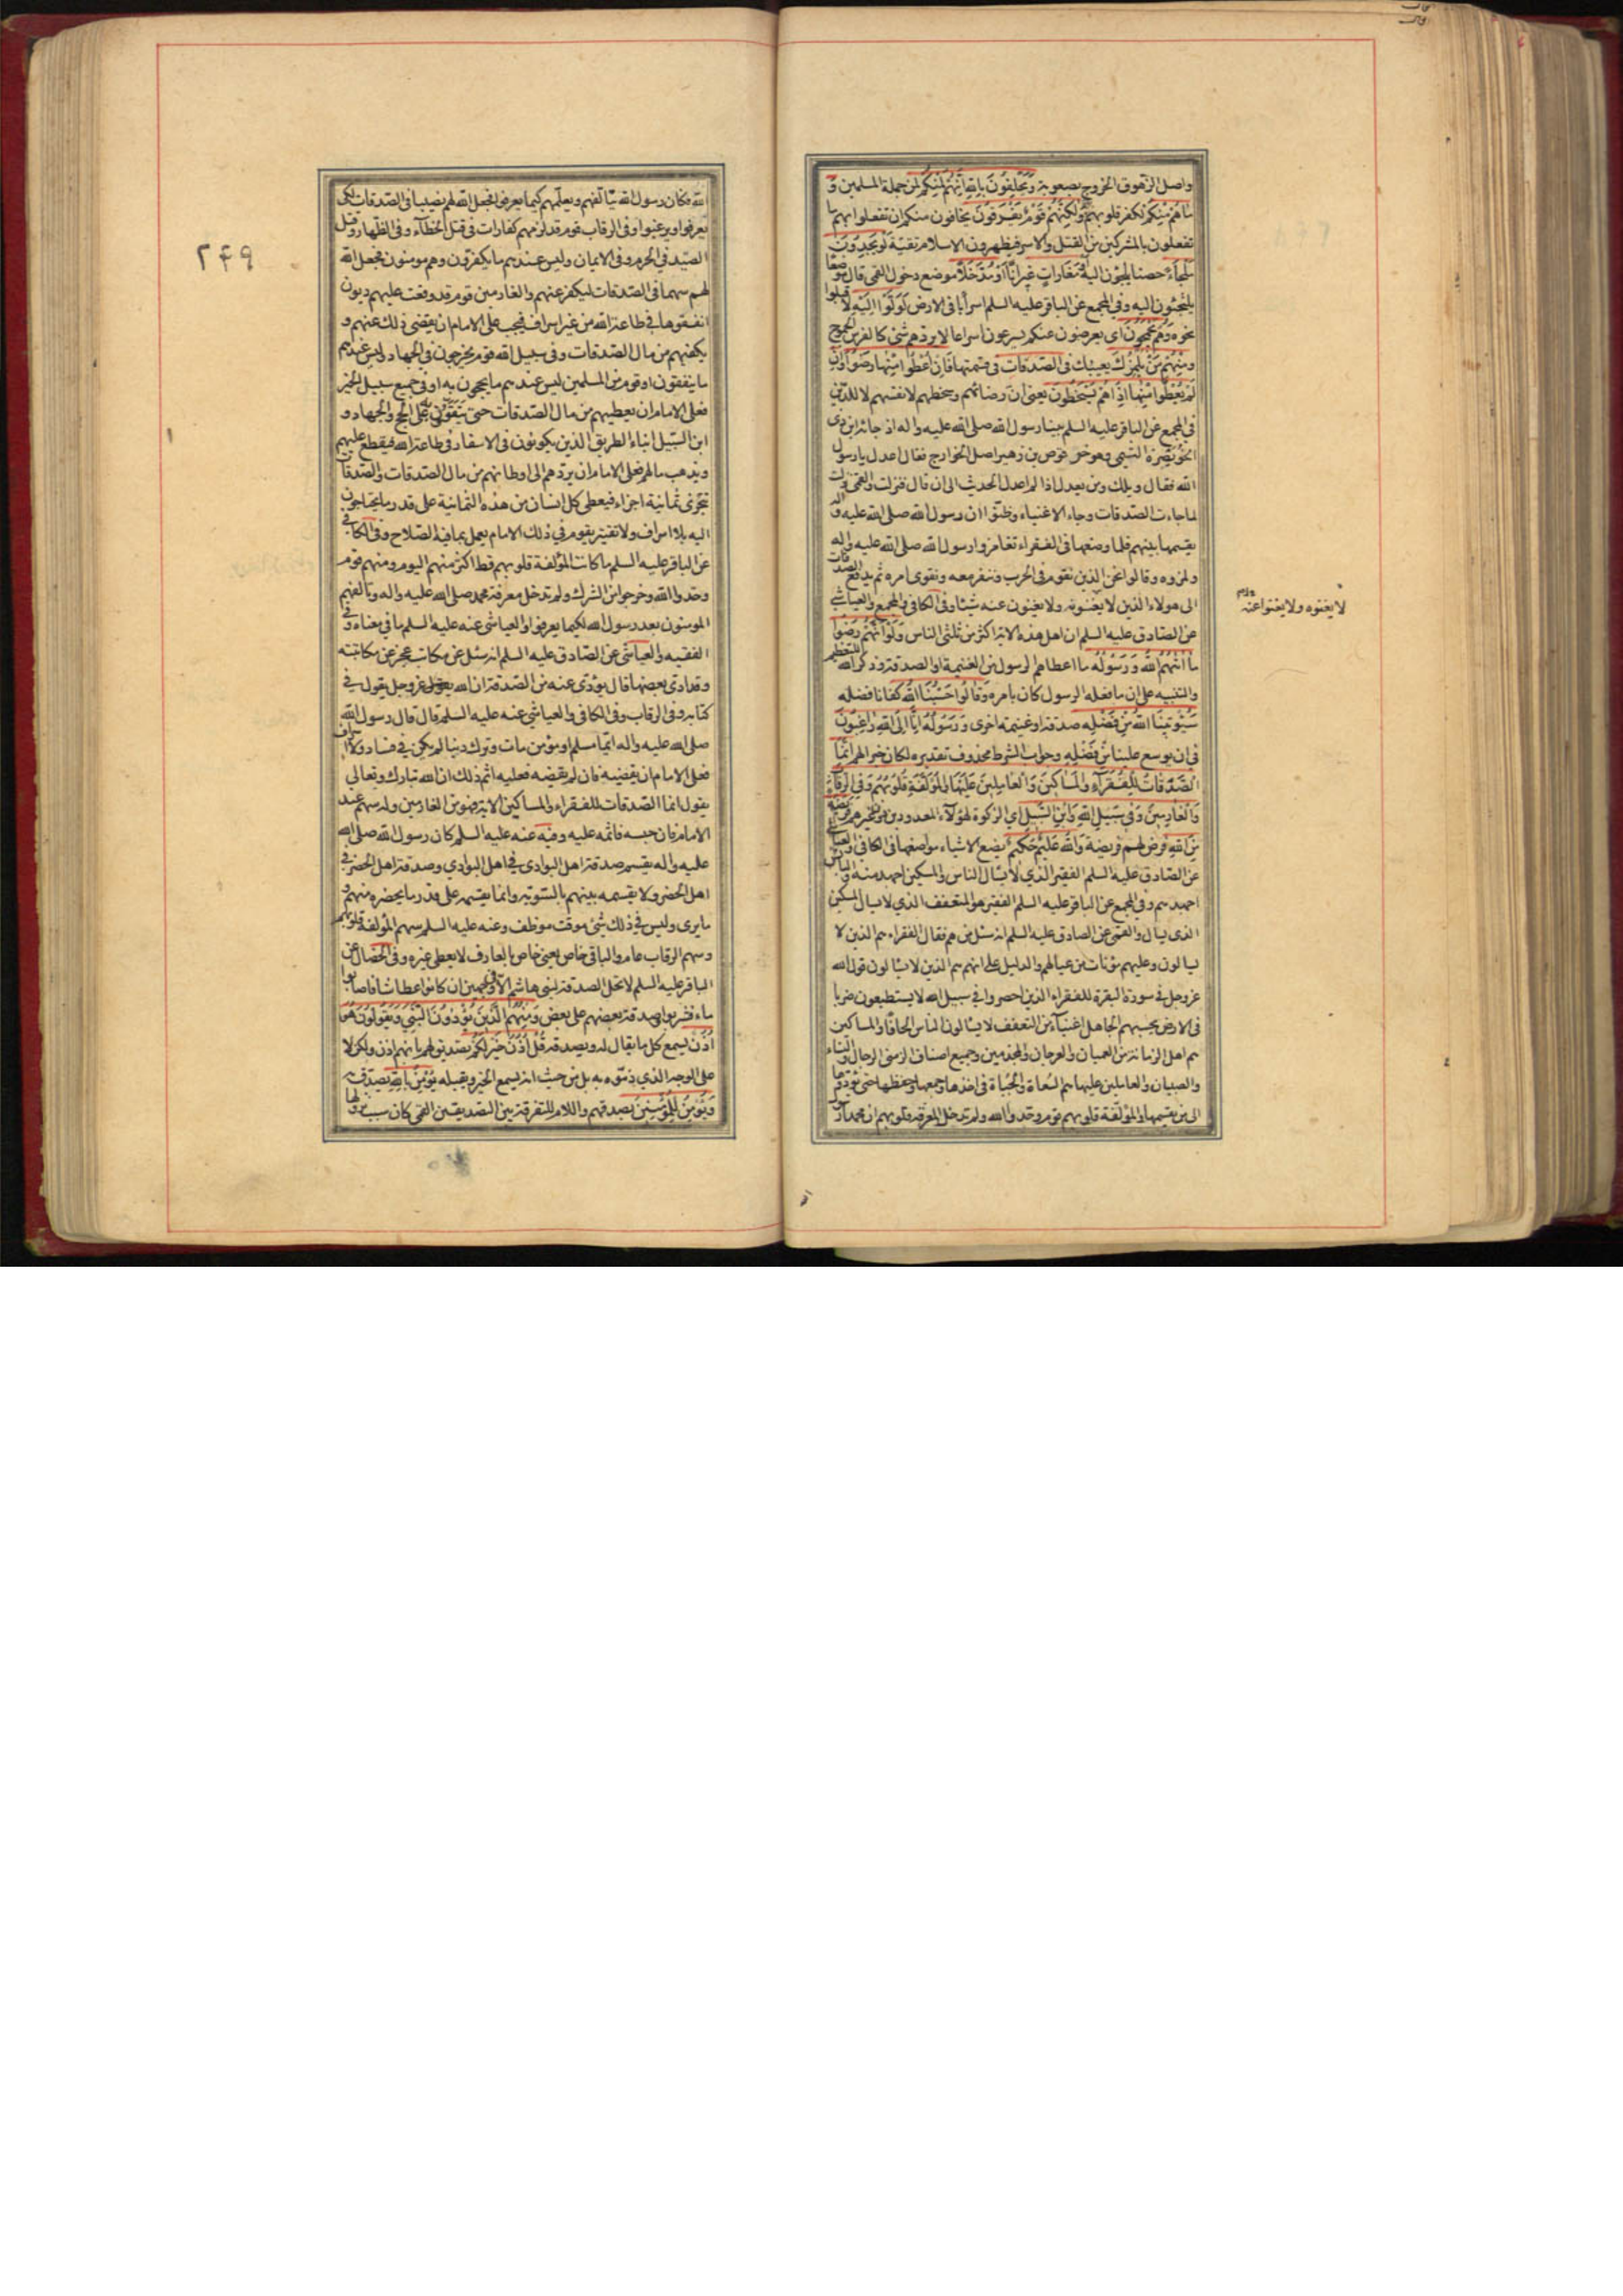 واصل الزهوق الخروج بصعوبة وَيَحْلِفُونَ بِاللهِ اِنَّهُمْ لَمِنْكُمْ لمن جملة المسلمين وَ
مَاهُمْ مِنْكُمْ لكفر قلوبهم وَلٰكِنَّهُمْ قَوْمٌ يَفْرَقُونَ يخافون منكم ان تفعلوا بهم ما
تفعلون بالمشركين من القتل والاسر فيظهرون الاسلام تقية لَوْ يَجِدُونَ
مَلْجَاءً حصنا يلجؤن اليه اَوْ مَغَارَاتٍ غيرانا اَوْ مُدَّخَلاً موضع دخول القمى قال موضعا
يلتجئون اليه وفي المجمع عن الباقر عليه السلم اسرابا في الارض لَوَلَّوْا اِلَيْهِ لاقبلوا
نحوه وَهُمْ يَجْمَحُونَ اى يعرضون عنكم يسرعون اسراعا لا يردهم شئ كالفرس الجموح
وَمِنْهُمْ مَنْ يَلْمِزُكَ يعيبك فِى الصَّدَقَاتِ فى قسمتها فَاِنْ اُعْطُوا مِنْهَا رَضُوا وَاِنْ
لَمْ يُعْطَوْا مِنْهَا اِذَا هُمْ يَسْخَطُونَ يعنى ان رضائهم وسخطهم لانفسهم لا للدين
في المجمع عن الباقر عليه السلم بينا رسول الله صلى الله عليه واله اذ جائه ابن ذى
الخويصرة التميمى وهو حرقوص بن زهير اصل الخوارج فقال اعدل يا رسول
الله فقال ويلك ومن يعدل اذا لم اعدل الحديث الى ان قال فنزلت والقمى نزلت
لما جاءت الصدقات وجاء الاغنياء وظنوا ان رسول الله صلى الله عليه واله
يقسمها بينهم فلما وضعها فى الفقراء تغامزوا رسول الله صلى الله عليه واله
ولمزوه وقالوا نحن الذين نقوم فى الحرب وننفر معه ونقوى امره ثم يدفع الصدقات
الى هولاء الذين لا يغنونه ولا يغنون عنه شيئا وفى الكافى والمجمع والعياشي
عن الصادق عليه السلم ان اهل هذه الاية اكثر من ثلثى الناس وَلَوْ اَنَّهُمْ رَضُوا
مَا اٰتٰيهُمُ اللهُ وَرَسُولُهُ ما اعطاهم الرسول من الغنيمة او الصدقة وذكر الله للتعظيم
والتنبيه على ان ما فعله الرسول كان بامره وَقَالُوا حَسْبُنَا اللهُ كفانا فضله
سَيُؤْتِينَا اللهُ مِنْ فَضْلِهِ صدقة او غنيمة اخرى وَرَسُولُهُ اِنَّا اِلَى اللهِ رَاغِبُونَ
فى ان يوسع علينا من فضله وجواب الشرط محذوف تقديره لكان خيرا لهم اِنَّمَا
الصَّدَقَاتُ لِلْفُقَرَاءِ وَالْمَسَاكِينِ وَالْعَامِلِينَ عَلَيْهَا وَالْمُؤَلَّفَةِ قُلُوبُهُمْ وَفِى الرِّقَابِ
وَالْغَارِمِينَ وَفِى سَبِيلِ اللهِ وَابْنِ السَّبِيلِ اي الزكوة لهؤلاء المعدودين دون غيرهم فَرِيضَةً
مِنَ اللهِ فرض لهم فريضة وَاللهُ عَلِيمٌ حَكِيمٌ يضع الاشياء مواضعها فى الكافى والعياشي
عن الصادق عليه السلم الفقير الذي لا يسأل الناس والمسكين اجهد منه والبائس
اجهدهم وفي المجمع عن الباقر عليه السلم الفقير هو المتعفف الذي لا يسال والمسكين
الذى يسال والقمى عن الصادق عليه السلم انه سئل من هم فقال الفقراء هم الذين لا
يسالون وعليهم مؤنات من عيالهم والدليل على انهم هم الذين لا يسألون قول الله
عز وجل في سورة البقرة للفقراء الذين احصروا في سبيل الله لا يستطيعون ضربا
فى الارض يحسبهم الجاهل اغنياء من التعفف لا يسألون الناس الحافا والمساكين
هم اهل الزمانة من العميان والعرجان والمجذومين وجميع اصناف الزمنى الرجال والنساء
والصبيان والعاملين عليها هم السعاة والجباة فى اخذها وجمعها وحفظها حتى يؤدوها
الى من يقسمها والمؤلفة قلوبهم قوم وحدوا الله ولم تدخل المعرفة قلوبهم ان محمدا رسول
لا يغنوه ولا يغنوا عنه
الله فكان رسول الله يتألفهم ويعلمهم كيما يعرفوا فجعل الله لهم نصيبا فى الصدقات لكى
يعرفوا ويرغبوا وفى الرقاب قوم قد لزمهم كفارات فى قتل الخطاء وفى الظهار وقتل
الصيد في الحرم وفى الايمان وليس عندهم ما يكفرون وهم مومنون فجعل الله
لهم سهما فى الصدقات ليكفر عنهم والغارمين قوم قد وقعت عليهم ديون
انفقوها في طاعة الله من غير اسراف فيجب على الامام ان يقضى ذلك عنهم و
يكفيهم من مال الصدقات وفى سبيل الله قوم يخرجون في الجهاد وليس عندهم
ما ينفقون او قوم من المسلمين ليس عندهم ما يحجون به او في جميع سبيل الخير
فعلى الامام ان يعطيهم من مال الصدقات حتى يتقوون على الحج والجهاد و
ابن السبيل ابناء الطريق الذين يكونون فى الاسفار فى طاعة الله فيقطع عليهم
ويذهب مالهم فعلى الامام ان يردهم الى اوطانهم من مال الصدقات والصدقات
تجزى ثمانية اجزاء فيعطى كل انسان من هذه الثمانية على قدر ما يحتاجون
اليه بلا اسراف ولا تقتير يقوم في ذلك الامام يعمل بما فيه الصلاح وفى الكافي
عن الباقر عليه السلم ما كانت المؤلفة قلوبهم قط اكثر منهم اليوم ومنهم قوم
وحدوا الله وخرجوا من الشرك ولم تدخل معرفة محمد صلى الله عليه واله وتالفهم
المومنون بعد رسول الله لكيما يعرفوا والعياشى عنه عليه السلم ما فى معناه وفي
الفقيه والعياشى عن الصادق عليه السلم انه سئل عن مكاتب عجز عن مكاتبته
وقد ادى بعضها قال يؤدى عنه من الصدقة ان الله عز وجل يقول في
كتابه وفى الرقاب وفى الكافى والعياشى عنه عليه السلم قال قال رسول الله
صلى الله عليه واله ايما مسلم او مؤمن مات وترك دينا لم يكن في فساد ولا اسراف
فعلى الامام ان يقضيه فان لم يقضه فعليه اثم ذلك ان الله تبارك وتعالى
يقول انما الصدقات للفقراء والمساكين الاية فهو من الغارمين وله سهم عند
الامام فان حبسه فاثمه عليه وفيه عنه عليه السلم كان رسول الله صلى الله
عليه واله يقسم صدقة اهل البوادى في اهل البوادي وصدقة اهل الحضر في
اهل الحضر ولا يقسمه بينهم بالسوية وانما يقسمه على قدر ما يحضره منهم و
ما يرى وليس في ذلك شئ موقت موظف وعنه عليه السلم سهم المؤلفة قلوبهم
وسهم الرقاب عام والباقى خاص يعنى خاص بالعارف لا يعطى غيره وفى الخصال عن
الباقر عليه السلم لا تحل الصدقة لبنى هاشم الا فى وجهين ان كانوا عطاشا فاصابوا
ماء فشربوا وصدقة بعضهم على بعض وَمِنْهُمُ الَّذِينَ يُؤْذُونَ النَّبِيَّ وَيَقُولُونَ هُوَ
اُذُنٌ يسمع كل ما يقال له ويصدقه قُلْ اُذُنُ خَيْرٍ لَكُمْ تصديق لهم بانه اذن ولكن لا
على الوجه الذي ذموه به بل من حيث انه يسمع الخير ويقبله يُؤْمِنُ بِاللهِ يصدق به
وَيُؤْمِنُ لِلْمُؤْمِنِينَ يصدقهم واللام للتفرقة بين التصديقين القمى كان سبب نزولها
۲۴۹